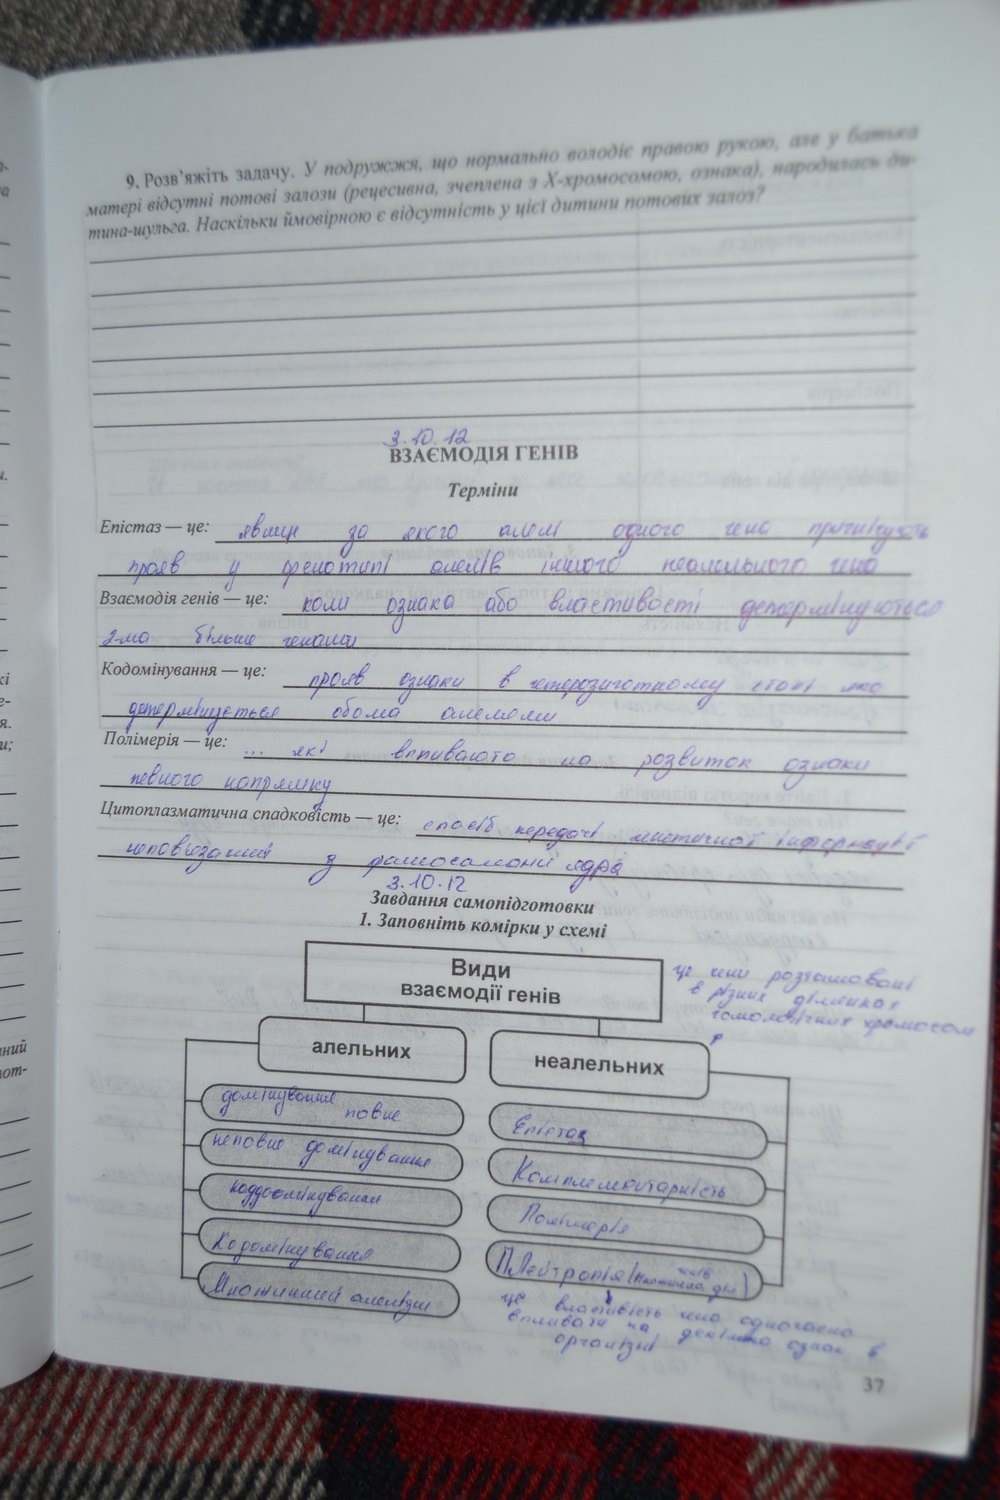 9. Розв’яжіть задачу. У подружжя, що нормально володіє правою рукою, але у батька
матері відсутні потові залози (рецесивна, зчеплена з X-хромосомою, ознака), народилась ди-
тина-шульга. Наскільки ймовірною є відсутність у цієї дитини потових залоз?
3.10.12
ВЗАЄМОДІЯ ГЕНІВ
Терміни
Епістаз — це: явище за якого алелі одного гена пригнічують
прояв у фенотипі алелів іншого неалельного гена
Взаємодія генів — це: коли ознака або властивості детермінуються
2-ма більше генами
Кодомінування — це: прояв ознаки в гетерозиготному стані яка
детермінується обома алелями
Полімерія — це: ... які впливають на розвиток ознаки
певного напрямку
Цитоплазматична спадковість — це: спосіб передачі інформації
з ядра
3.10.12
Завдання самопідготовки
1. Заповніть комірки у схемі
Види
взаємодії генів
це гени розташовані
в різних ділянках
гомологічних хромосом
алельних
неалельних
домінування
повне
неповне домінування
наддомінування
Кодомінування
Множинний алелізм
Епістаз
Комплементарність
Полімерія
Плейтропія (множинна дія генів)
це властивість гена одночасно
впливати на декілька ознак в
організмі
37